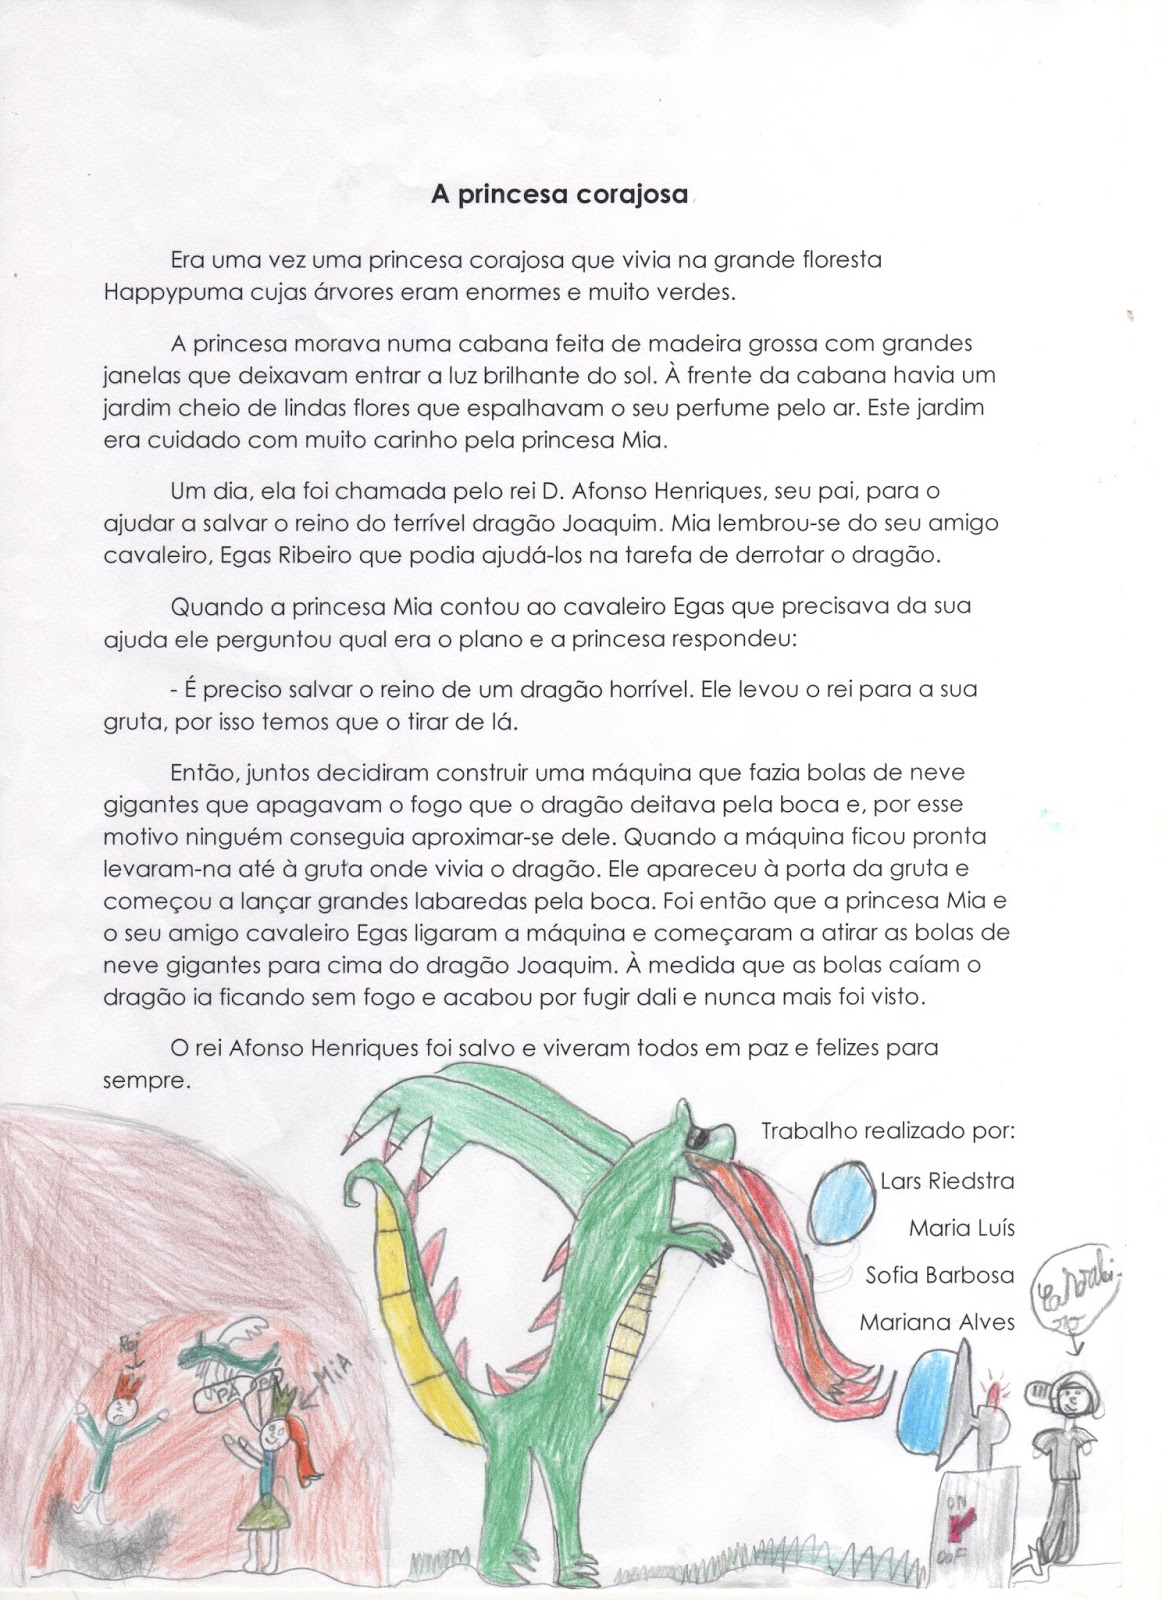 A princesa corajosa
Era uma vez uma princesa corajosa que vivia na grande floresta
Happypuma cujas árvores eram enormes e muito verdes.
A princesa morava numa cabana feita de madeira grossa com grandes
janelas que deixavam entrar a luz brilhante do sol. À frente da cabana havia um
jardim cheio de lindas flores que espalhavam o seu perfume pelo ar. Este jardim
era cuidado com muito carinho pela princesa Mia.
Um dia, ela foi chamada pelo rei D. Afonso Henriques, seu pai, para o
ajudar a salvar o reino do terrível dragão Joaquim. Mia lembrou-se do seu amigo
cavaleiro, Egas Ribeiro que podia ajudá-los na tarefa de derrotar o dragão.
Quando a princesa Mia contou ao cavaleiro Egas que precisava da sua
ajuda ele perguntou qual era o plano e a princesa respondeu:
- É preciso salvar o reino de um dragão horrível. Ele levou o rei para a sua
gruta, por isso temos que o tirar de lá.
Então, juntos decidiram construir uma máquina que fazia bolas de neve
gigantes que apagavam o fogo que o dragão deitava pela boca e, por esse
motivo ninguém conseguia aproximar-se dele. Quando a máquina ficou pronta
levaram-na até à gruta onde vivia o dragão. Ele apareceu à porta da gruta e
começou a lançar grandes labaredas pela boca. Foi então que a princesa Mia e
o seu amigo cavaleiro Egas ligaram a máquina e começaram a atirar as bolas de
neve gigantes para cima do dragão Joaquim. À medida que as bolas caíam o
dragão ia ficando sem fogo e acabou por fugir dali e nunca mais foi visto.
O rei Afonso Henriques foi salvo e viveram todos em paz e felizes para
sempre.
Trabalho realizado por:
Lars Riedstra
Maria Luís
Sofia Barbosa
Mariana Alves
Rei
MiA
PA
PA
ON
OOF